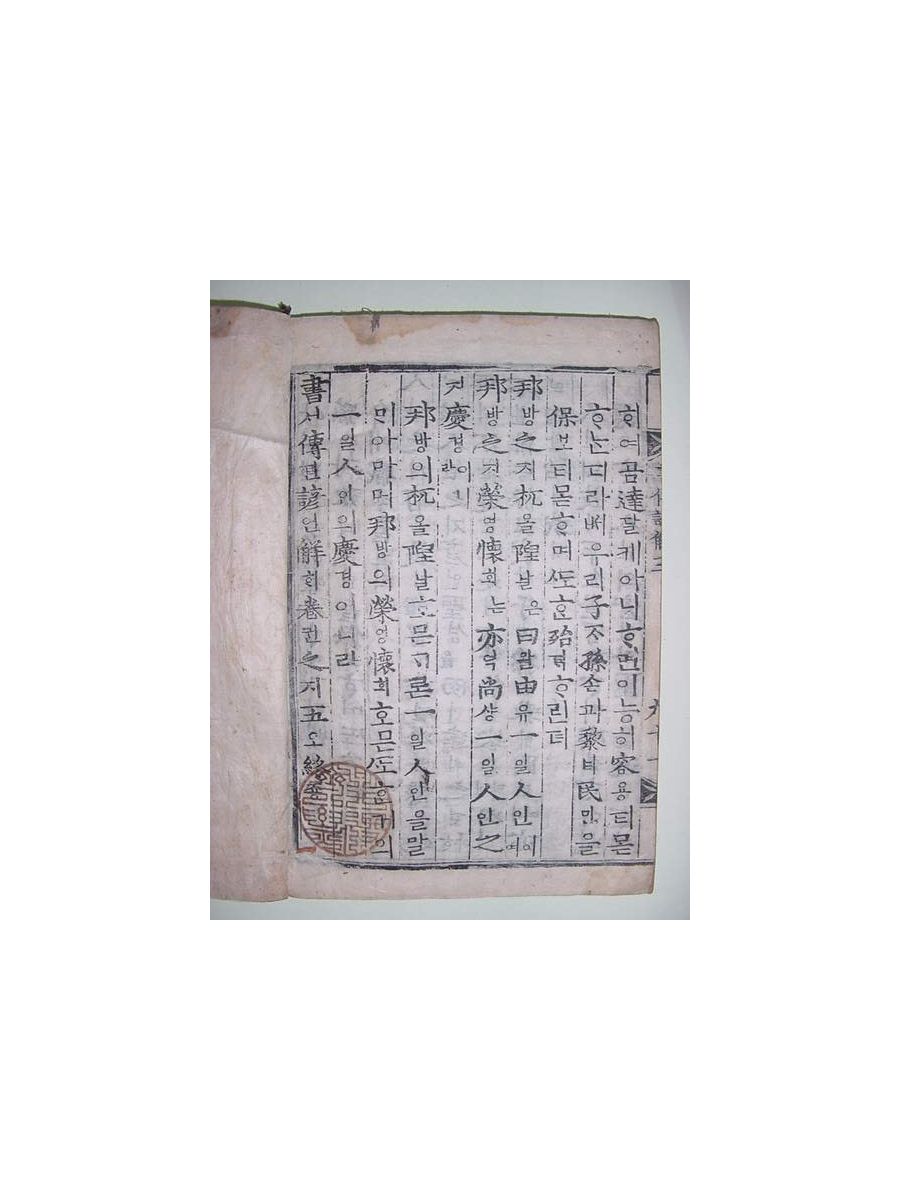 ᄒᆞ여곰達달케아니ᄒᆞ면이능히容용티몯
ᄒᆞᄂᆞᆫ디라ᄡᅥ우리子ᄌᆞ孫손과黎려民민을
保보티몯ᄒᆞ며ᄯᅩᄒᆞᆫ殆ᄐᆡᄒᆞ린뎌
邦방之지杌올隉날은曰왈由유一일人인이며
邦방之지榮영懷회ᄂᆞᆫ亦역尚샹一일人인之
지慶경이니라
邦방의杌올隉날홈은ᄀᆞᆯ온一일人인을말
ᄆᆡ아마며邦방의榮영懷회홈은ᄯᅩᄒᆞᆫ의
一일人인의慶경이니라
書셔傳젼諺언解ᄒᆡ卷권之지五오終죵